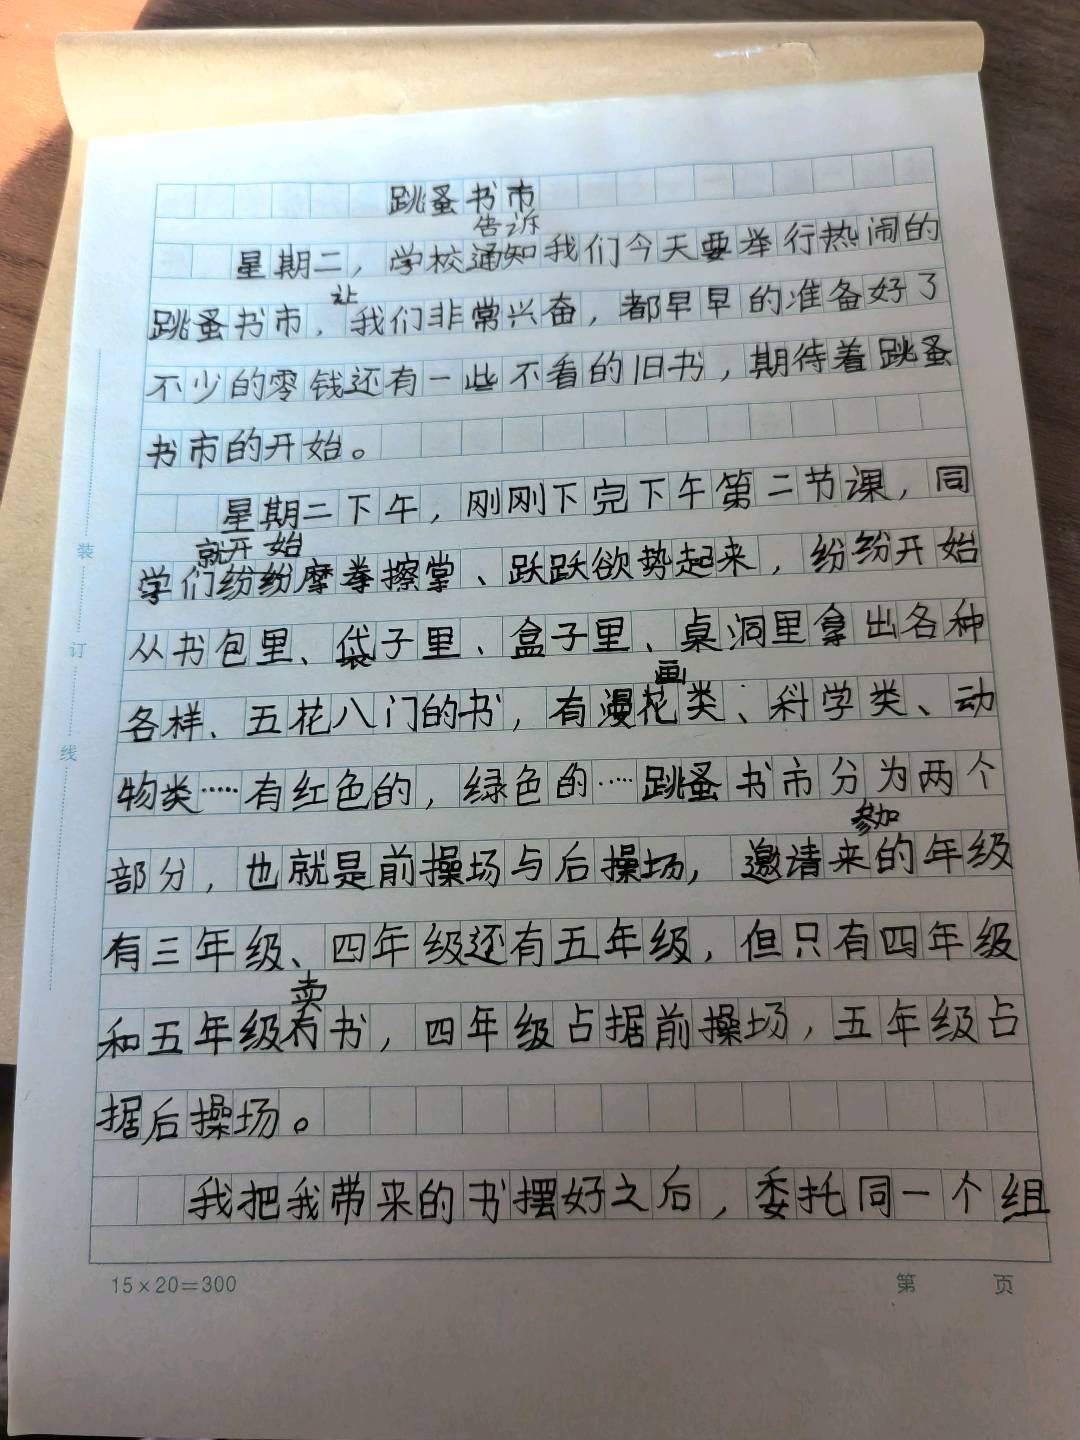 跳蚤书市
告诉
星期二，学校通知我们今天要举行热闹的
让
跳蚤书市，我们非常兴奋，都早早的准备好了
不少的零钱还有一些不看的旧书，期待着跳蚤
书市的开始。
星期二下午，刚刚下完下午第二节课，同
就开始
学们纷纷摩拳擦掌、跃跃欲势起来，纷纷开始
从书包里、袋子里、盒子里、桌洞里拿出各种
画
各样、五花八门的书，有漫花类、科学类、动
物类……有红色的，绿色的……跳蚤书市分为两个
参加
部分，也就是前操场与后操场，邀请来的年级
有三年级、四年级还有五年级，但只有四年级
卖
和五年级有书，四年级占据前操场，五年级占
据后操场。
我把我带来的书摆好之后，委托同一个组
装
订
线
15×20=300
第 页